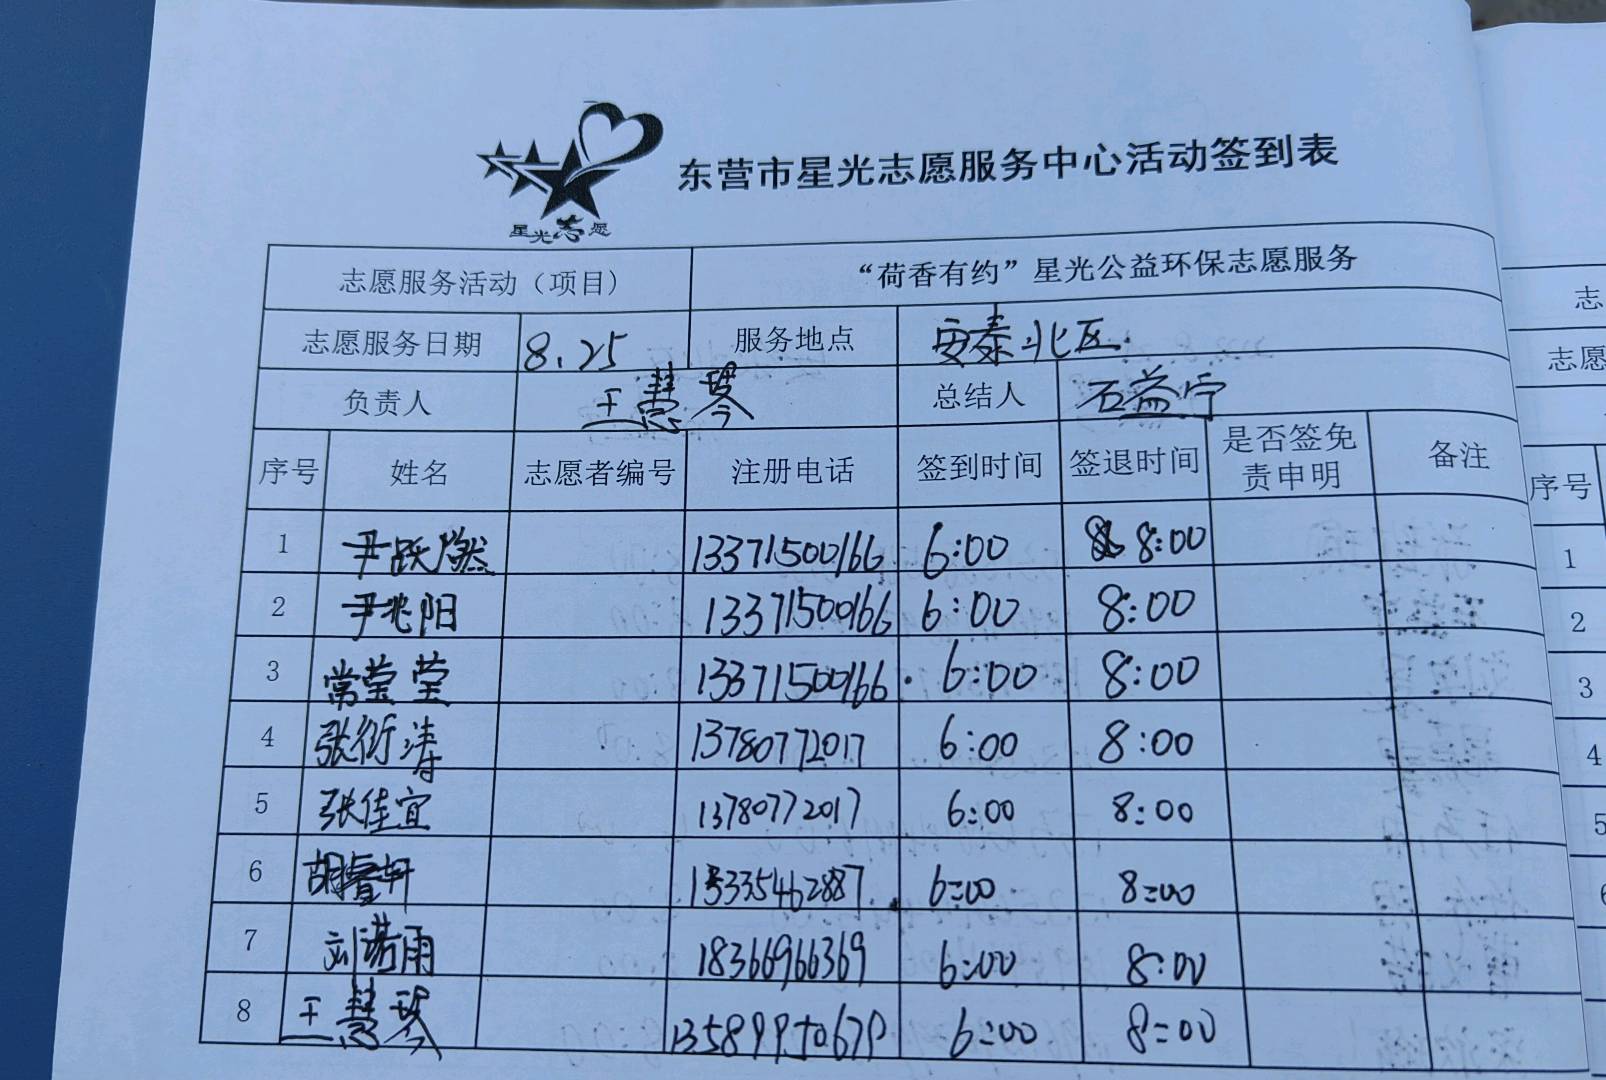 星光志愿
东营市星光志愿服务中心活动签到表
志愿服务活动（项目） “荷香有约”星光公益环保志愿服务
志愿服务日期 8.25 服务地点 安泰北区
负责人 王慧琴 总结人 石益宁
序号 姓名 志愿者编号 注册电话 签到时间 签退时间 是否签免责申明 备注
1 尹跃燃 13371500166 6:00 8:00
2 尹兆阳 13371500166 6:00 8:00
3 常莹莹 13371500166 6:00 8:00
4 张衍涛 13780772017 6:00 8:00
5 张佳宜 13780772017 6:00 8:00
6 胡 轩 15335462887 6:00 8:00
7 刘诺雨 18366966369 6:00 8:00
8 王慧琴 13589950679 6:00 8:00
志
志愿
序号
1
2
3
4
5